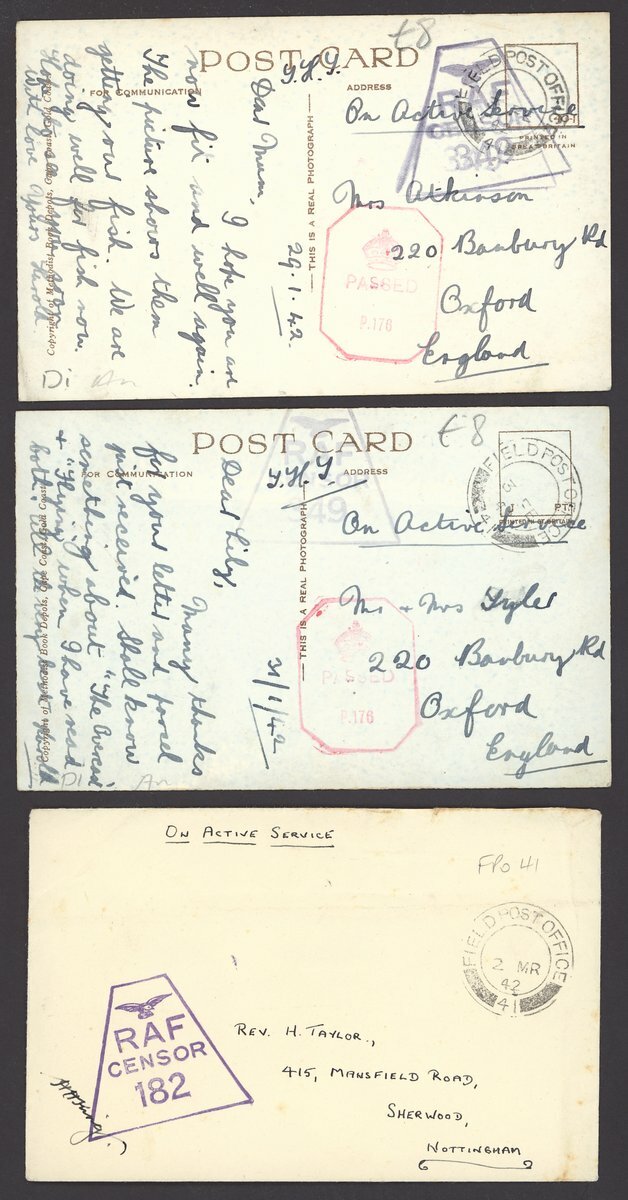 £8
POST CARD
FOR COMMUNICATION
ADDRESS
THIS IS A REAL PHOTOGRAPH
PRINTED IN
GREAT BRITAIN
FIELD POST OFFICE
RAF
CENSOR
349
On Active Service
Mrs Atkinson
220 Banbury Rd
Oxford
England
PASSED
P.176
29.1.42.
Dear Mum, I hope you are
now fit and well again.
The picture shows them
getting our fish. We are
doing well for fish now.
With love Yours
Copyright of Methodist Book Depots, Gold Coast
Di An
£8
POST CARD
FOR COMMUNICATION
ADDRESS
THIS IS A REAL PHOTOGRAPH
FIELD POST OFFICE
RAF
49
On Active Service
Mr + Mrs Tyler
220 Banbury Rd
Oxford
England
PASSED
P.176
31/1/42
Dear Lily,
Many thanks
for your letter and parcel
just received. Shall know
something about "The
+ "Flying" when I have read
both. All the very best
Copyright of Methodist Book Depots, Cape Coast, Gold Coast
Di An
ON ACTIVE SERVICE
FPO 41
FIELD POST OFFICE
2 MR
42
41
RAF
CENSOR
182
REV. H. TAYLOR.,
415, MANSFIELD ROAD,
SHERWOOD,
NOTTINGHAM